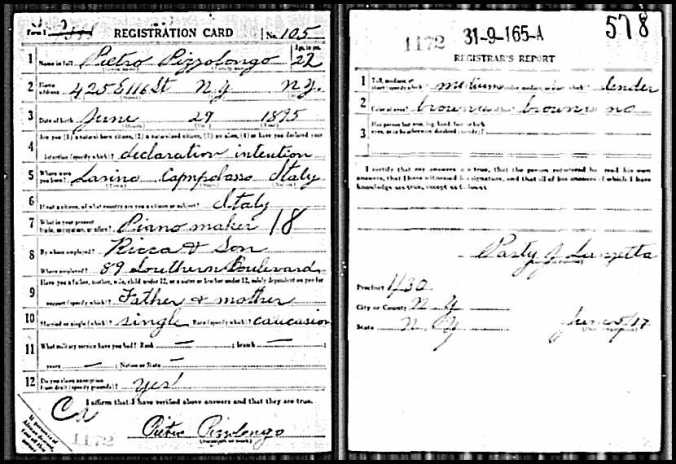 Form 1 REGISTRATION CARD No. 105
1 Name in full Pietro Pizzolongo Age, in yrs. 22
2 Home address 425 E 116 St N.Y. N.Y.
3 Date of birth June 29 1895
4 Are you (1) a natural-born citizen, (2) a naturalized citizen, (3) an alien, (4) or have you declared your
intention (specify which)? declaration intention
5 Where were you born? Larino Campobasso Italy
6 If not a citizen, of what country are you a citizen or subject? Italy
7 What is your present trade, occupation, or office? Piano maker 18
8 By whom employed? Ricca & Son
Where employed? 89 Southern Boulevard
9 Have you a father, mother, wife, child under 12, or a sister or brother under 12, solely dependent on you for
support (specify which)? Father & mother
10 Married or single (which)? single Race (specify which)? caucasion
11 What military service have you had? Rank — ; branch —
years — ; Nation or State —
12 Do you claim exemption from draft (specify grounds)? Yes
I affirm that I have verified above answers and that they are true.
1172
Pietro Pizzolongo
1172 31-9-165-A 578
REGISTRAR'S REPORT
1 Tall, medium, or short (specify which)? medium Slender, medium, or stout (which)? slender
2 Color of eyes? brown Color of hair? brown Bald? no
3 Has person lost arm, leg, hand, foot, or both
eyes, or is he otherwise disabled (specify)?
I certify that my answers are true, that the person registered has read his own
answers, that I have witnessed his signature, and that all of his answers of which I have
knowledge are true, except as follows:
Precinct 1/30
City or County N.Y.
State N.Y. June 5/17